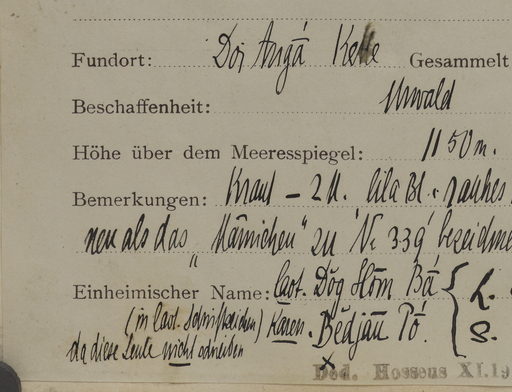 Fundort: Doi Angā Kette Gesammelt
Beschaffenheit: Urwald
Höhe über dem Meeresspiegel: 1150 m.
Bemerkungen: Kraut – 2 lila Bl. rauhes
nen als das „Männchen" zu № 339 bezeichne
Einheimischer Name: Laot. Dŏg Hŏm Bā
(in Laot. Schriftzeichen) Karen. Bĕdjău Pō.
da diese Leute nicht schreiben
Ded. Hosseus XI.19